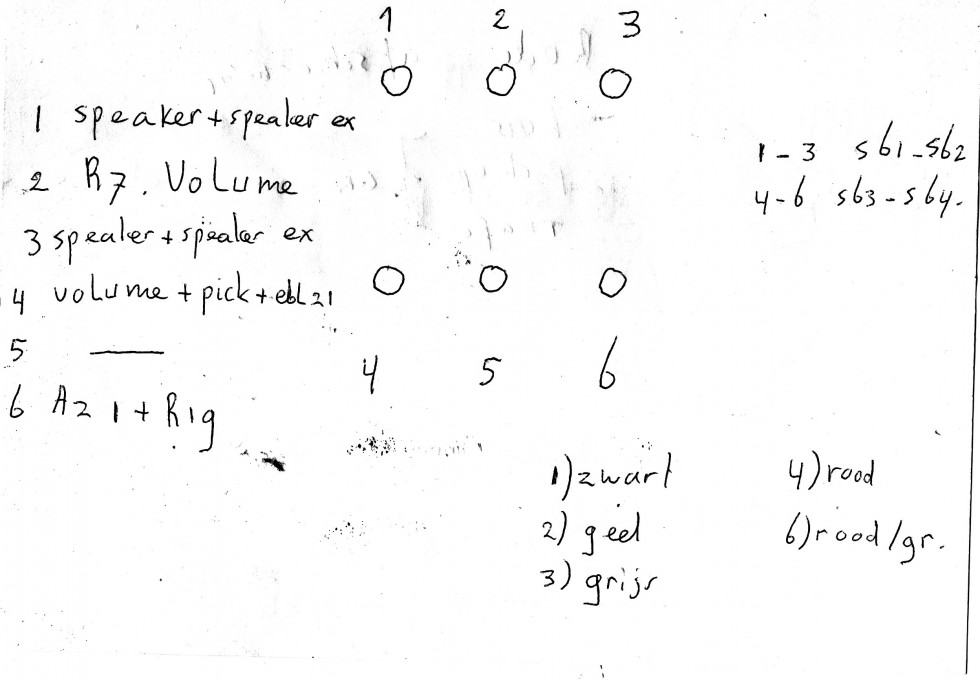 1 2 3
1 speaker + speaker ex
2 R7. Volume
3 speaker + speaker ex
4 volume + pick + ebl 21
5 —
6 Az 1 + R19
1-3 sb1-sb2
4-6 sb3-sb4.
4 5 6
1) zwart
2) geel
3) grijs
4) rood
6) rood/gr.